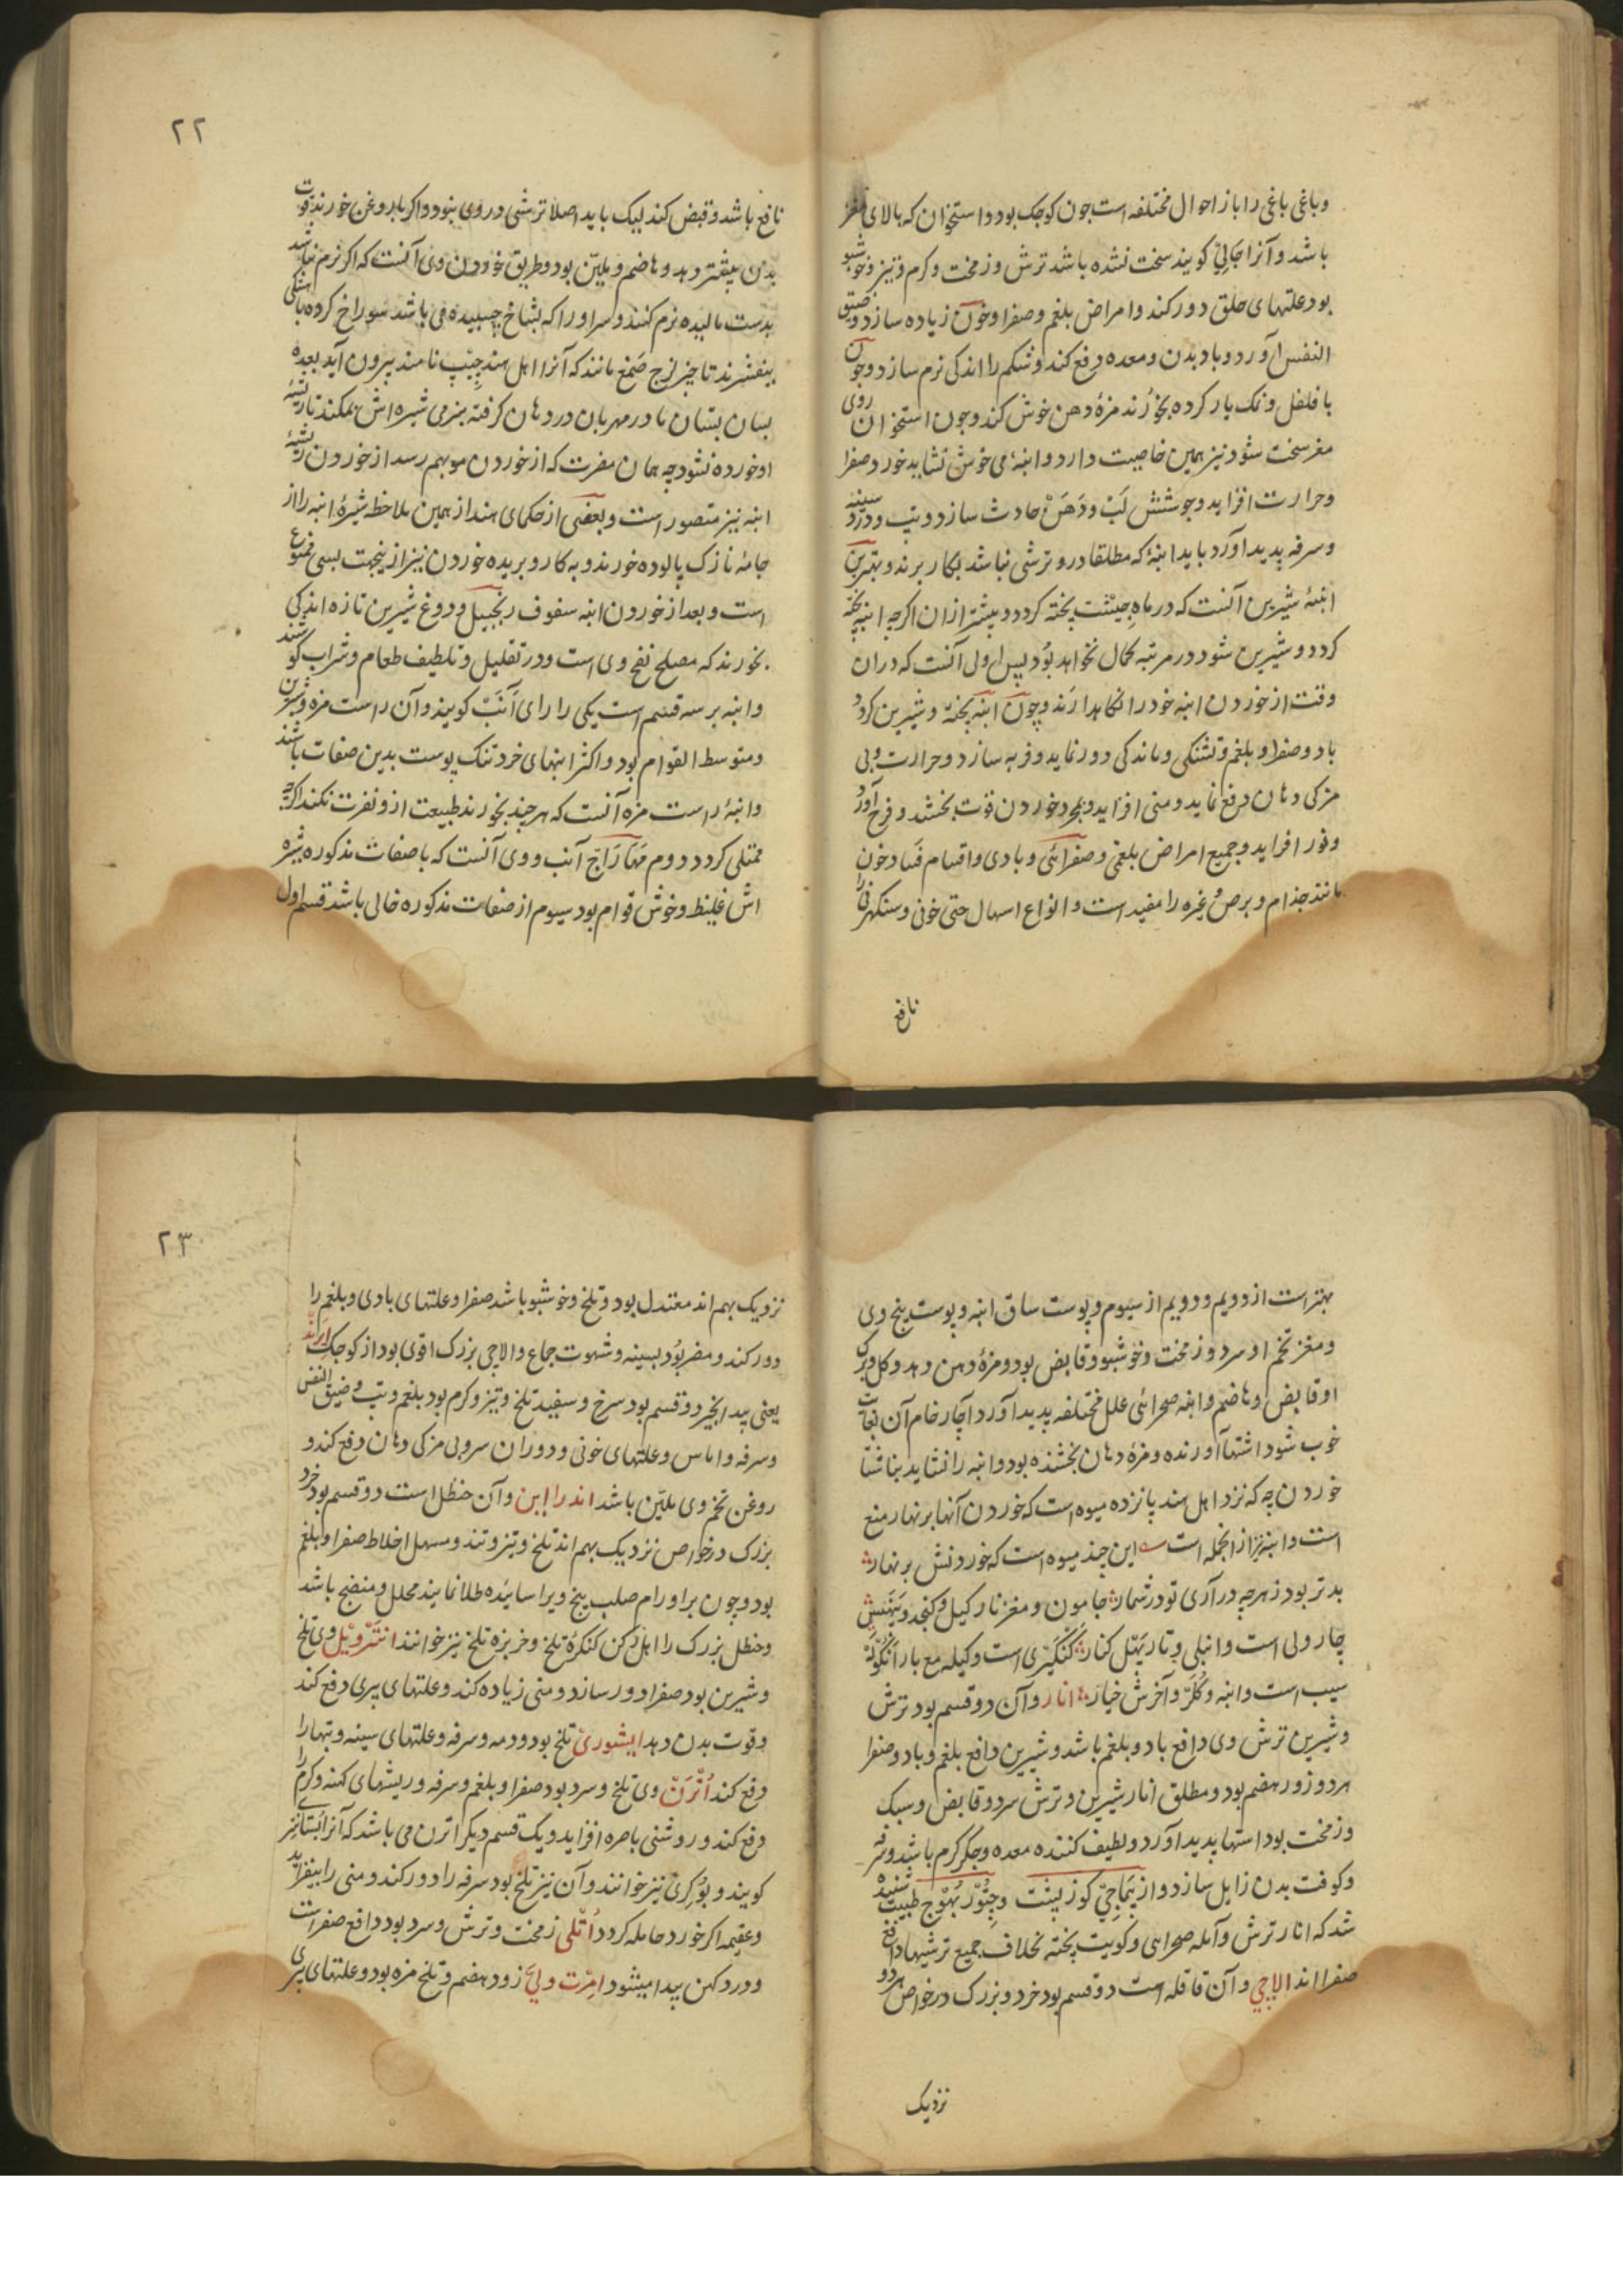 وباغی باغی را باز احوال مختلفه است چون کوچک بود و استخوان که بالای مغز
باشد و آنرا جَالِیْ کویند سخت نشده باشد ترش و زمخت و کرم و تیز و خوشبو
بود علتهای حلق دور کند و امراض بلغم و صفرا و خون زیاده سازد و ضیق
النفس آورد و باد بدن و معده دفع کند و شکم را اندکی نرم سازد و چون
با فلفل و نمک یار کرده بخورند مزهٔ دهن خوش کند و چون استخوان روی
مغز سخت شود نیز همین خاصیت دارد و انبهٔ می خوش نشاید خورد صفرا
و حرارت افزاید و جوشش لَبْ و دَهَنْ حادث سازد و تب و درد سینه
و سرفه پدید آورد باید انبهٔ که مطلقا درو ترشی نباشد بکار برند و بهترین
انبهٔ شیرین آنست که در ماه جِیتْتْ پخته کردد و پیشتر ازان اکرچه انبه پخته
کردد و شیرین شود در مرتبه کمال نخواهد بُود پس اولی آنست که دران
وقت از خوردن انبه خود را نکاهدارند و چون انبه پخته و شیرین کردد
باد و صفرا و بلغم و تشنکی و ماندکی دور نماید و فربه سازد و حرارت و بی
مزکی دهان دفع نماید و منی افزاید و بمجرد خوردن قوت بخشد و فرح آورد
و نور افزاید و جمیع امراض بلغمی و صفرائی و بادی و اقسام فساد خون
مانند جذام و برص و غیره را مفید است و انواع اسهال حتی خونی و سنکهرنی را
نافع
۲۲
نافع باشد و قبض کند لیک باید اصلا ترشی در وی نبود و اکر با روغن خورند قوت
بدن بیشتر دهد و هاضم و ملیّن بود و طریق خوردن وی آنست که اکر نرم نباشد
بدست مالیده نرم کنند و سر او را که بشاخ چسپیده می باشد سوراخ کرده باهستکی
بیفشرند تا چیز لزج صَمغ مانند که آنرا اهل هند چِیْپ نامند بیرون آید بعده
بسان پستان مادر مهربان در دهان کرفته بنرمی شیره اش بمکند تا ریشهٔ
او خورده نشود چه همان مضرت که از خوردن مو بهم رسد از خوردن ریشهٔ
انبه نیز متصور است و بعضی از حکمای هند از همین ملاحظه شیرهٔ انبه را از
جامهٔ نازک پالوده خورند و به کارد بریده خوردن نیز ازینجهت بسی ممنوع
است و بعد از خوردن انبه سفوف زنجبیل و دوغ شیرین تازه اندکی
بخورند که مصلح نفخ وی است و در تقلیل و تلطیف طعام و شراب کوشند
و انبه بر سه قسم است یکی را رای آنَبْ کویند و آن راست مزه و شیرین
و متوسط القوام بود و اکثر انبهای خرد تنک پوست بدین صفات باشند
و انبهٔ راست مزه آنست که هر چند بخورند طبیعت ازو نفرت نکند اکرچه
ممتلی کردد دوم مَهَا رَاجْ آنب و وی آنست که با صفات مذکوره شیره
اش غلیظ و خوش قوام بود سیوم از صفات مذکوره خالی باشد قسم اول
بهتر است از دویم و دویم از سیوم و پوست ساق انبه و پوست بیخ وی
و مغز تخم او سرد و زمخت و خوشبو و قابض بود و مزهٔ دهن دهد و کل و برک
او قابض و هاضم و انبه صحرائی علل مختلفه پدید آورد آچار خام آن بغایت
خوب شود اشتها آورنده و مزهٔ دهان بخشنده بود و انبه را نشاید بناشتا
خوردن چه که نزد اهل هند پانزده میوه است که خوردن آنها بر نهار منع
است و انبه نیز ازانجمله است این چند میوه است که خوردنش بر نهار
بدتر بود ز هرچه در آری تو در شمار جامون و مغز نارکیل و کنجد و پَهَنَسْ
چار ولی است و انبلی و تار پَهَل کنار کنکَیرْی است و کیله مع بار انکَولَهْ
سیب است و انبه و کُلَرْ و آخرش خیار انار و آن دو قسم بود ترش
و شیرین ترش وی دافع باد و بلغم باشد و شیرین دافع بلغم و باد و صفرا
هر دو زود هضم بود و مطلق انار شیرین و ترش سرد و قابض و سبک
و زمخت بود اشتها پدید آورد و لطیف کننده معده و جکر کرم باشد و تفه
و کوفت بدن زایل سازد و از نِمَاجِیْ کوز بنیت و چِتُوْرْ بُهُوْج طبیب شنیده
شد که انار ترش و آمله صحرایی و کویت پخته بخلاف جمیع ترشیها دافع
صفرا اند الاچی و آن قاقله است دو قسم بود خرد و بزرک در خواص هر دو
نزدیک
۲۳
نزدیک بهم اند معتدل بود و تلخ و خوشبو باشد صفرا و علتهای بادی و بلغم را
دور کند و مضر بُود بسینه و شهوت جماع و الاچی بزرک اقوی بود از کوچک ارند
یعنی بید انجیر دو قسم بود سرخ و سفید تلخ و تیز و کرم بود بلغم و تب و ضیق النفس
و سرفه و اماس و علتهای خونی و دوران سر و بی مزکی دهان دفع کند و
روغن تخم وی ملیّن باشد اندراین و آن حنظل است دو قسم بود خرد
بزرک در خواص نزدیک بهم اند تلخ و تیز و تند و مسهل اخلاط صفرا و بلغم
بود و چون بر اورام صلب بیخ ویرا سائیده طلا نمایند محلل و منضج باشد
و حنظل بزرک را اهل دکن کنکرهٔ تلخ و خربزه تلخ نیز خوانند انتَرْوِیل وی تلخ
و شیرین بود صفرا دور سازد و منی زیاده کند و علتهای پیری دفع کند
و قوت بدن دهد ایشوری تلخ بود و دمه و سرفه و علتهای سینه و تبها را
دفع کند اُتْرَنْ وی تلخ و سرد بود صفرا و بلغم و سرفه و ریشهای کهنه و کرم را
دفع کند و روشنی باصره افزاید و یک قسم دیکر اترن می باشد که آنرا بُستانیز
کویند و بُوکِرِی نیز خوانند و آن نیز تلخ بود سرفه را دور کند و منی را بیفزاید
و عقیمه اکر خورد حامله کردد اُتلی زمخت و ترش و سرد بود دافع صفراست
و درد کهن پیدا میشود امِرْت ولیْ زود هضم و تلخ مزه بود و علتهای پیری